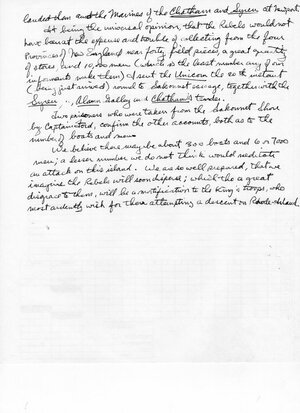 landed them and the Marines of the Chatham and Syren at Newport.
It being the universal opinion, that the Rebels would not
have been at the expence and trouble of collecting from the four
Provinces of New England near forty field pieces, a great quantity
of stores, and 10,000 men (which is the least number any of our
informants make them) I sent the Unicorn the 20th instant
(being just arrived) round to Sakonnet passage, together with the
Syren, Alarm Galley and Chatham's tender.
Two prisoners who were taken from the Sakonnet Shore
by Captain, confirm the other accounts, both as to the
number of boats and men.
We believe there may be about 300 boats and 6 or 7000
men; a lesser number we do not think would meditate
an attack on this island. We are so well prepared, that we
imagine the Rebels will soon disperse; which tho a great
disgrace to them, will be a mortification to the King's troops, who
most ardently wish for their attempting a descent on Rhode Island.